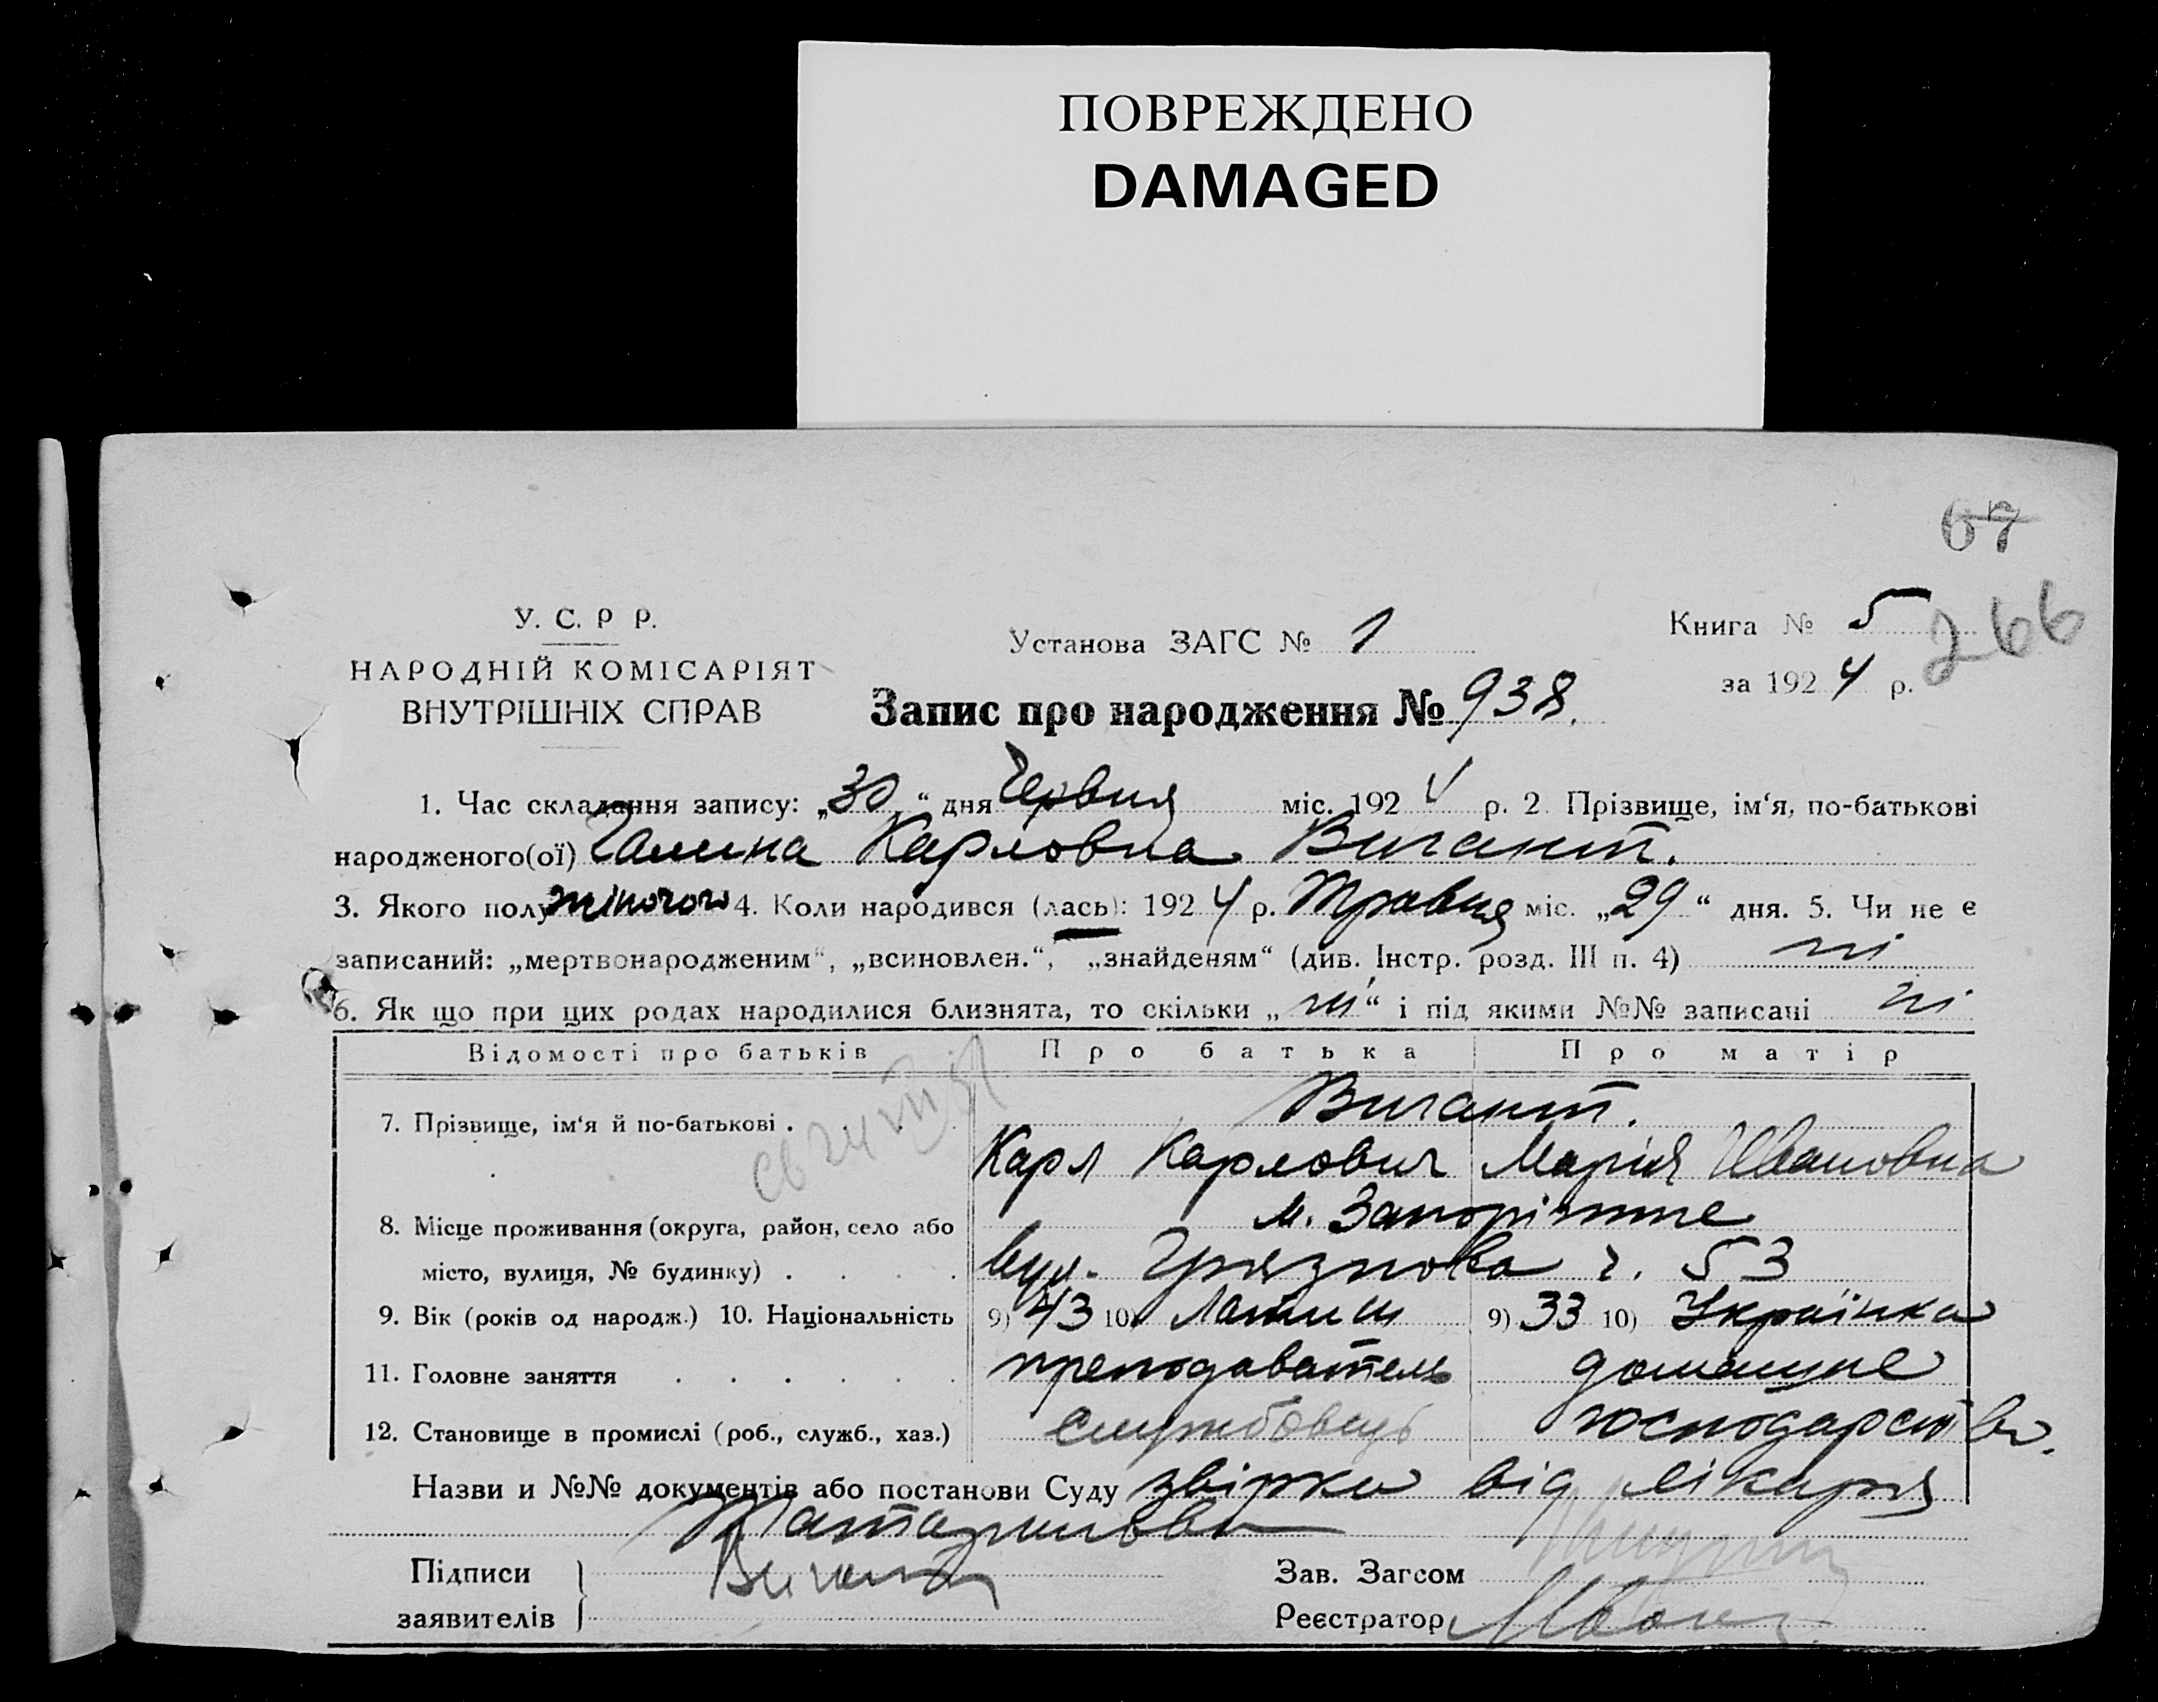 ПОВРЕЖДЕНО
DAMAGED
67
У. С. Р Р.
НАРОДНІЙ КОМІСАРІЯТ
ВНУТРІШНІХ СПРАВ
Установа ЗАГС № 1
Книга № 5
266
за 1924 р.
Запис про народження № 938.
1. Час складання запису: „30“ дня Червня міс. 1924 р. 2 Прізвище, ім‘я, по-батькові
народженого(ої) Галина Карловна Вигант.
3. Якого полу жіночого 4. Коли народився (лась): 1924 р. Травня міс. „29“ дня. 5. Чи не є
записаний: „мертвонародженим“, „всиновлен.“, „знайденям“ (див. Інстр. розд. III п. 4) ні
6. Як що при цих родах народилися близнята, то скільки „ні“ і під якими №№ записані ні
Відомості про батьків Про батька Про матір
7. Прізвище, ім‘я й по-батькові . Вигант.
Карл Карлович Марія Ивановна
8. Місце проживання (округа, район, село або м. Запоріжже
місто, вулиця, № будинку) . . . . вул. Грязнова ч. 53
9. Вік (років од народж.) 10. Національність 9) 43 10) Латиш 9) 33 10) Українка
11. Головне заняття . . . . . . преподаватель домашне
12. Становище в промислі (роб., служб., хаз.) службовець господарство.
Назви и №№ документів або постанови Суду звістка від лікаря
Підписи
заявителів
Вигант
Зав. Загсом
Реєстратор